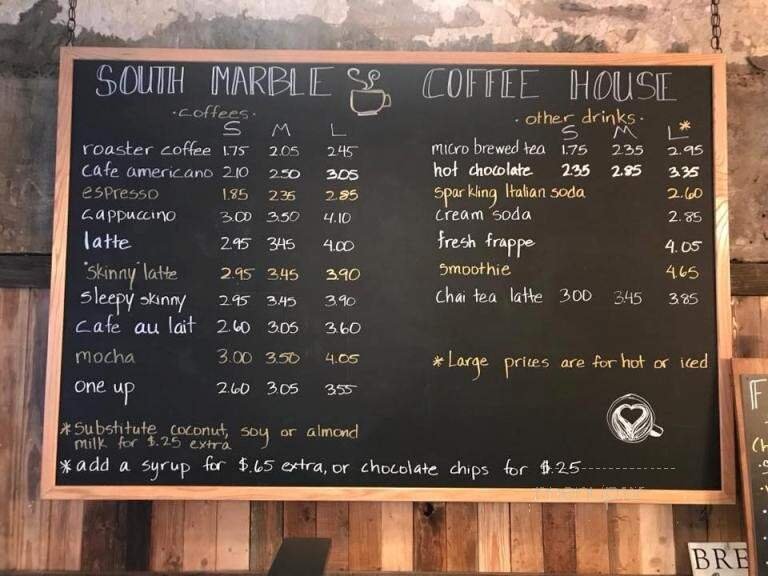 SOUTH MARBLE COFFEE HOUSE
·coffees·
S M L
roaster coffee 1.75 2.05 2.45
cafe americano 2.10 2.50 3.05
espresso 1.85 2.35 2.85
cappuccino 3.00 3.50 4.10
latte 2.95 3.45 4.00
"skinny" latte 2.95 3.45 3.90
sleepy skinny 2.95 3.45 3.90
cafe au lait 2.60 3.05 3.60
mocha 3.00 3.50 4.05
one up 2.60 3.05 3.55
*substitute coconut, soy or almond
milk for $.25 extra
*add a syrup for $.65 extra, or chocolate chips for $.25
·other drinks·
S M L*
micro brewed tea 1.75 2.35 2.95
hot chocolate 2.35 2.85 3.35
sparkling Italian soda 2.60
cream soda 2.85
fresh frappe 4.05
smoothie 4.65
chai tea latte 3.00 3.45 3.85
*Large prices are for hot or iced
F
BRE